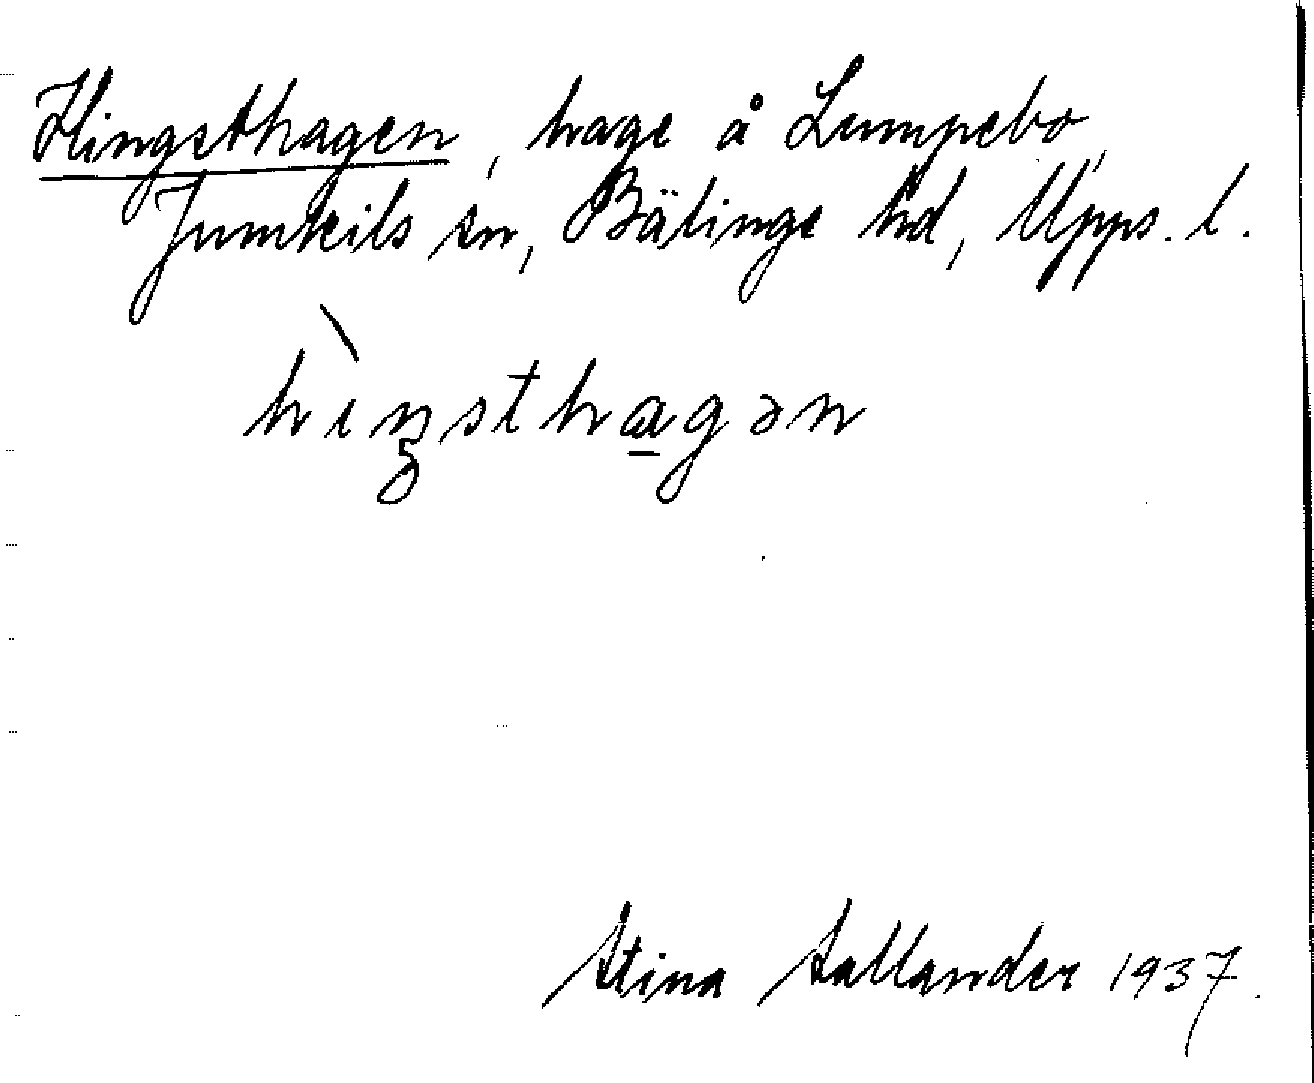 Hingsthagen, hage å Lumpebo,
Jumkils sn, Bälinge hd, Upps. l.
hìŋsthagən
Stina Sallander 1937.